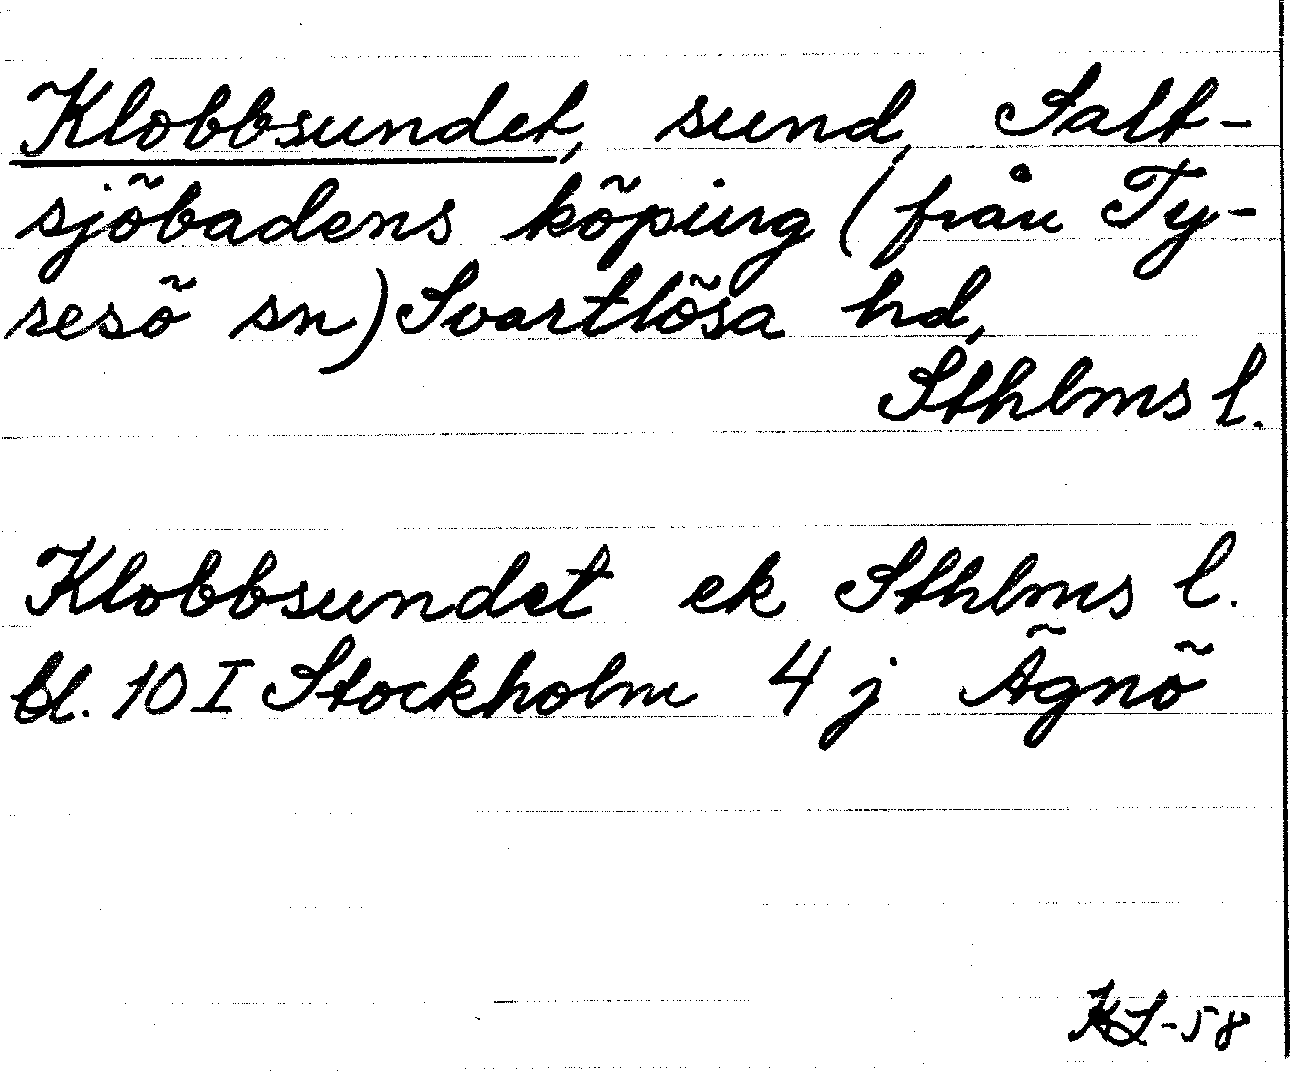 Klobbsundet, sund, Salt-
sjöbadens köping (från Ty-
resö sn) Svartlösa hd,
Sthlms l.
Klobbsundet ek Sthlms l.
bl. 10 I Stockholm 4 j Ägnö
KL-58